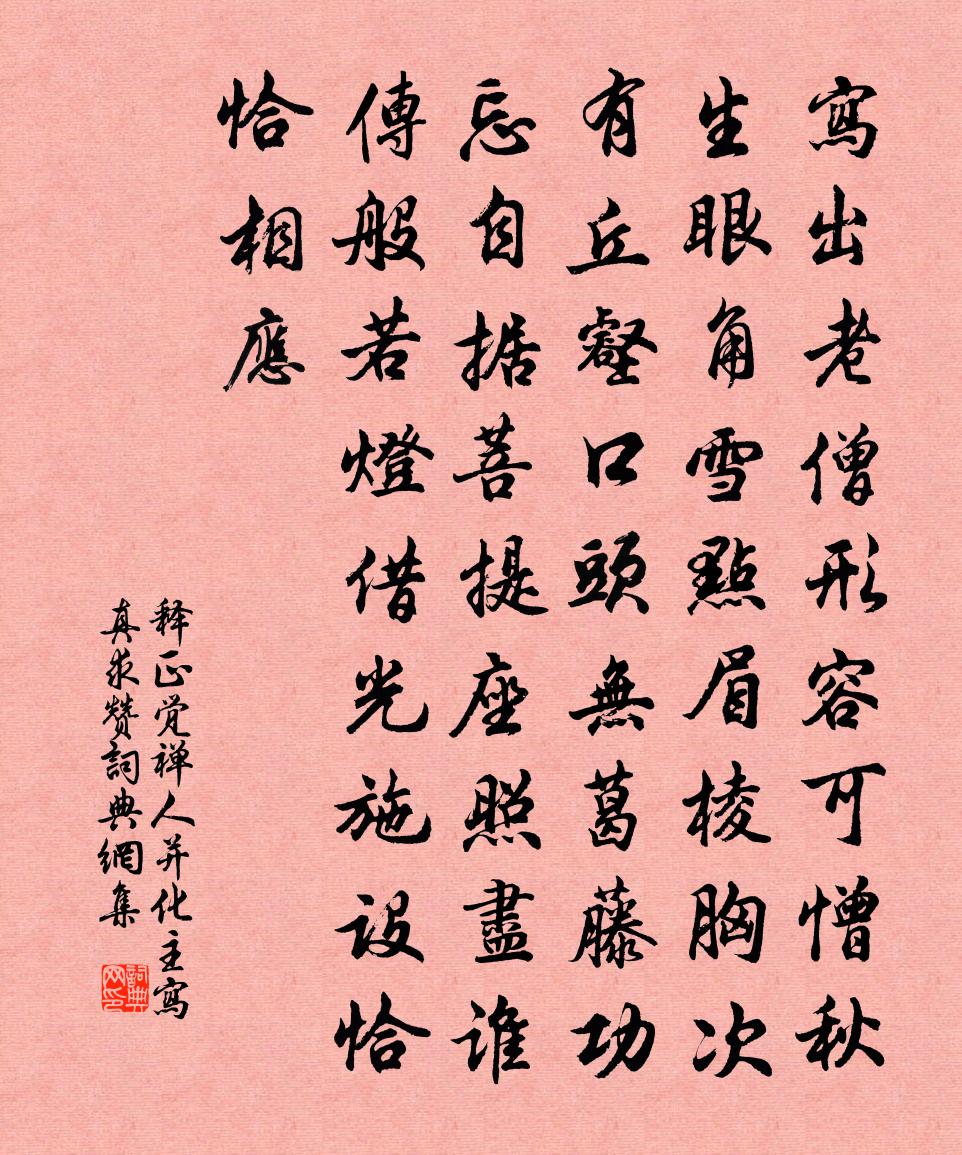 寫出老僧形容可憎秋
生眼角雪點眉棱胸次
有丘壑口頭無葛藤功
忘自據菩提座照盡誰
傳般若燈借光施設恰
恰相應
释正觉禅人并化主寫
真求赞詞典網集
詞典网印